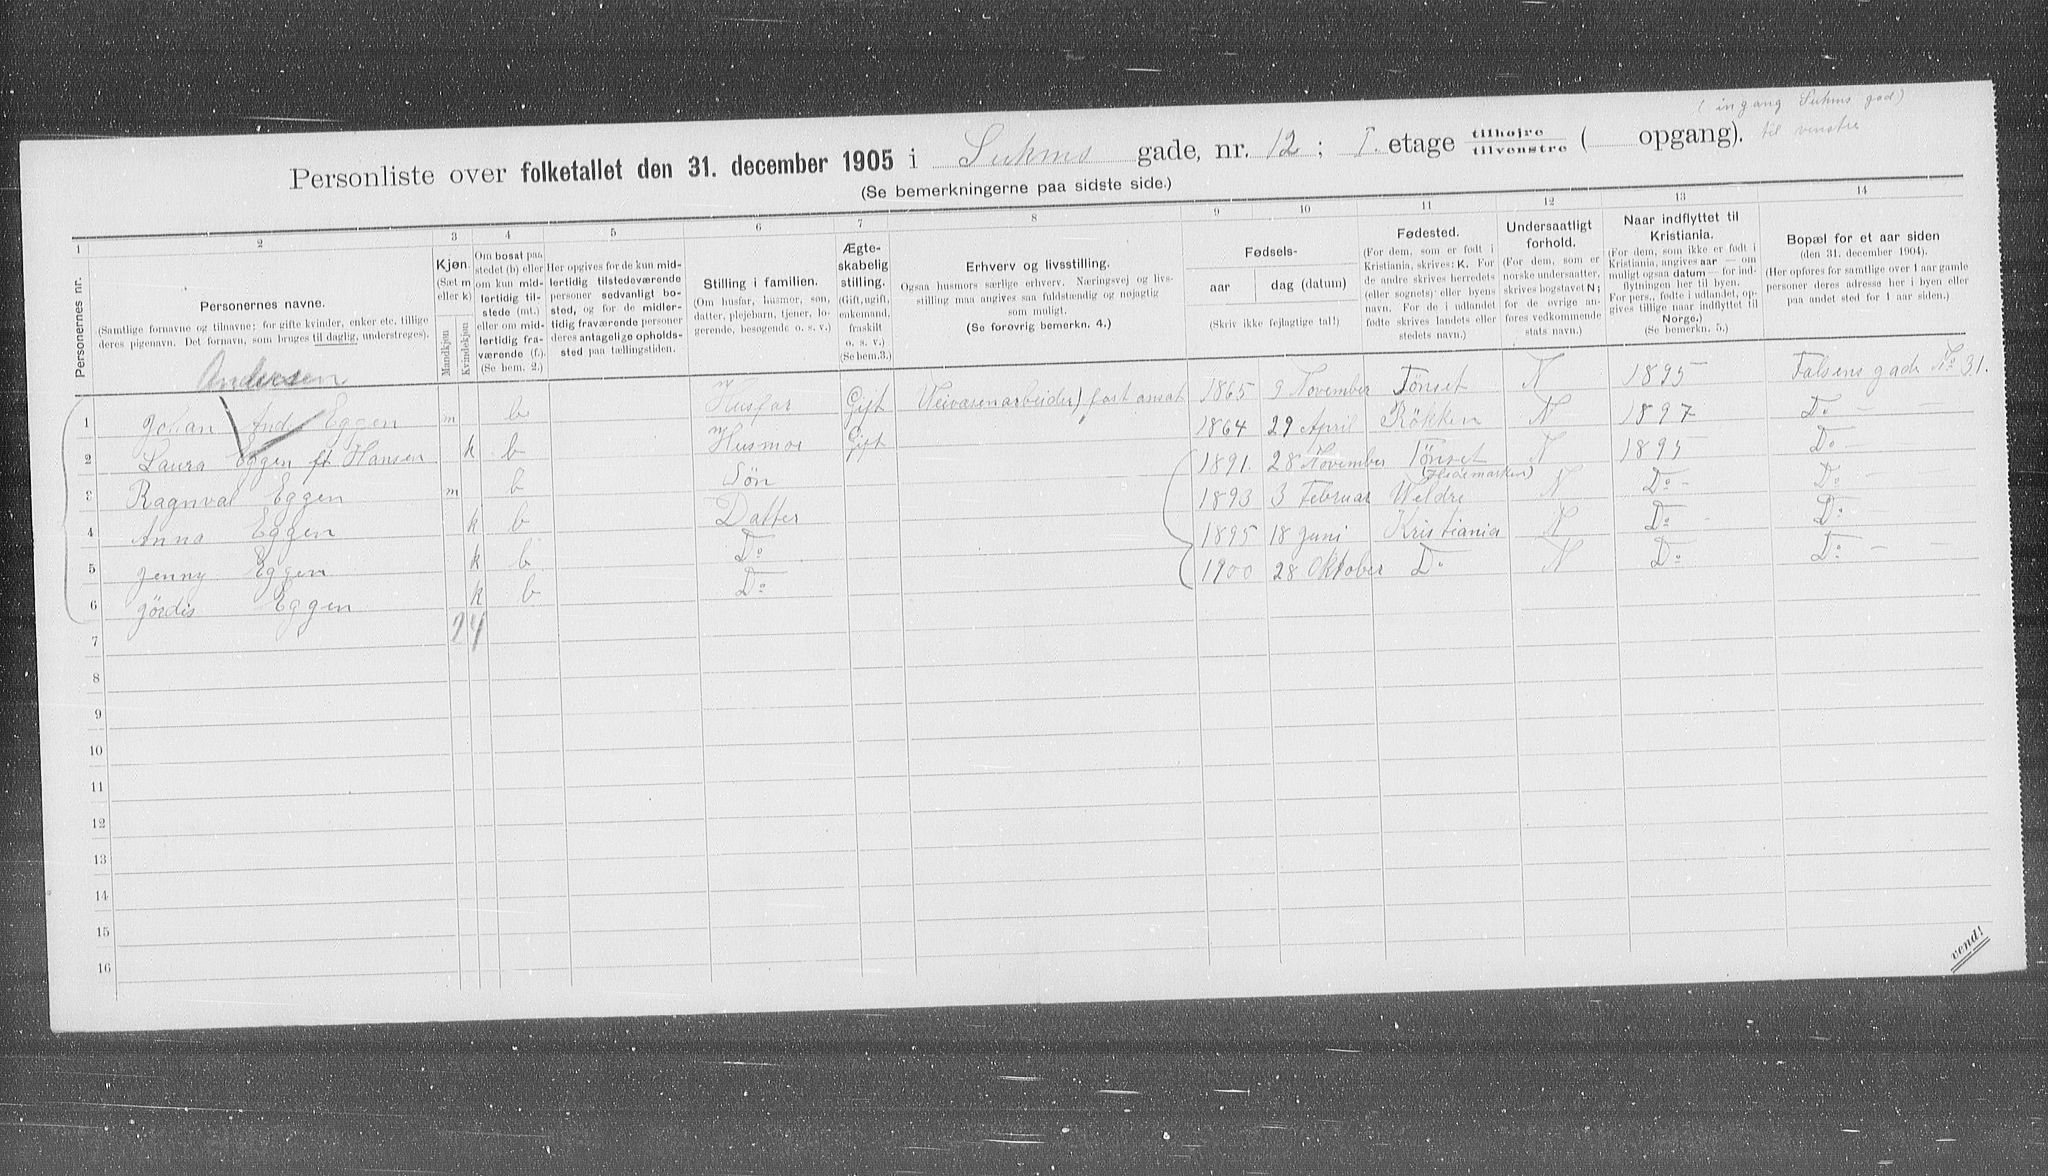 (ingang Suhms gad)
til venstre
Personliste over folketallet den 31. december 1905 i Suhms gade, nr. 12; I. etage tilhøjre tilvenstre ( opgang).
(Se bemerkningerne paa sidste side.)
1 2 3 4 5 6 7 8 9 10 11 12 13 14
Personernes nr.
Personernes navne.
(Samtlige fornavne og tilnavne; for gifte kvinder, enker etc. tillige
deres pigenavn. Det fornavn, som bruges til daglig, understreges).
Kjøn.
(Sæt m
eller k)
Mandkjøn
Kvindekjøn
Om bosat paa
stedet (b) eller
om kun mid-
lertidig til-
stede (mt.)
eller om mid-
lertidig fra-
værende (f.).
(Se bem. 2.)
Her opgives for de kun mid-
lertidig tilstedeværende
personer sedvanligt bo-
sted, og for de midler-
tidig fraværende personer
deres antagelige opholds-
sted paa tællingstiden.
Stilling i familien.
(Om husfar, husmor, søn,
datter, plejebarn, tjener, lo-
gerende, besøgende o. s. v.)
Ægte-
skabelig
stilling.
(Gift, ugift,
enkemand,
fraskilt
o. s. v.)
(Se bem.3.)
Erhverv og livsstilling.
Ogsaa husmors særlige erhverv. Næringsvej og livs-
stilling maa angives saa fuldstændig og nøjagtig
som muligt.
(Se forøvrig bemerkn. 4.)
Fødsels-
aar dag (datum)
(Skriv ikke fejlagtige tal!)
Fødested.
(For dem, som er født i
Kristiania, skrives: K. For
de andre skrives herredets
(eller sognets) eller byens
navn. For de i udlandet
fødte skrives landets eller
stedets navn.)
Undersaatligt
forhold.
(For dem, som er
norske undersaatter,
skrives bogstavet N;
for de øvrige an-
føres vedkommende
stats navn.)
Naar indflyttet til
Kristiania.
(For dem, som ikke er født i
Kristiania, angives aar — om
muligt ogsaa datum — for ind-
flytningen her til byen.
For pers., fødte i udlandet, op-
gives tillige naar indflyttet til
Norge.)
(Se bemerkn. 5.)
Bopæl for et aar siden
(den 31. december 1904).
(Her opføres for samtlige over 1 aar gamle
personer deres adresse her i byen eller
paa andet sted for 1 aar siden.)
Andersen
1 Johan And Eggen m b Husfar Gift Veivæsenarbeider) fast ansat 1865 9 November Tönset N 1895 Falsens gade No 31.
2 Laura Eggen ft Hansen k b Husmor Gift 1864 29 April Rökken N 1897 Do — —
3 Ragnval Eggen m b Sön 1891. 28 November Tönset N 1895 Do — —
(Hedemarken)
4 Anna Eggen k b Datter 1893 3 Februar Veldre N Do - Do -
5 Jenny Eggen k b Do 1895 18 Juni Kristiania N Do - Do - -
6 Jördis Eggen k b Do 1900 28 Oktober Do N Do Do — —
7 2 4
8
9
10
11
12
13
14
15
16
vend!